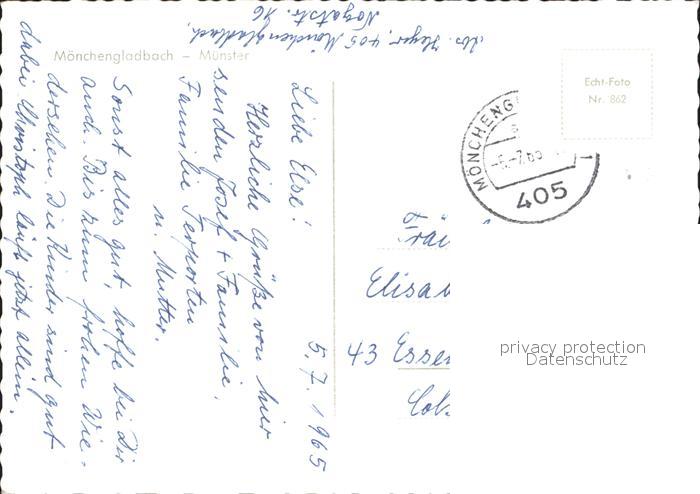 Abs. Heyer, 405 Mönchengladbach,
Nogatstr. 46
Mönchengladbach – Münster
5. 7. 1965
Liebe Else!
Herzliche Grüße von hier
senden Josef + Familie,
Familie Terporten
u. Mutter.
Sonst alles gut, hoffe bei Dir
auch. Bis zum frohen Wie-
dersehen. Die Kinder sind gut
dabei Christoph läuft jetzt allein.
Echt-Foto
Nr. 862
MÖNCHENG
-6.-7.65
405
Fräu
Elisa
43 Essen
privacy protection
Datenschutz